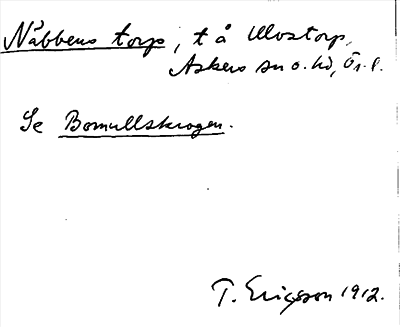 Nabbens torp, t å Ulvstorp,
Askers sn o. hd, Ör. l.
Se Bomullskrogen.
T. Ericsson 1912.